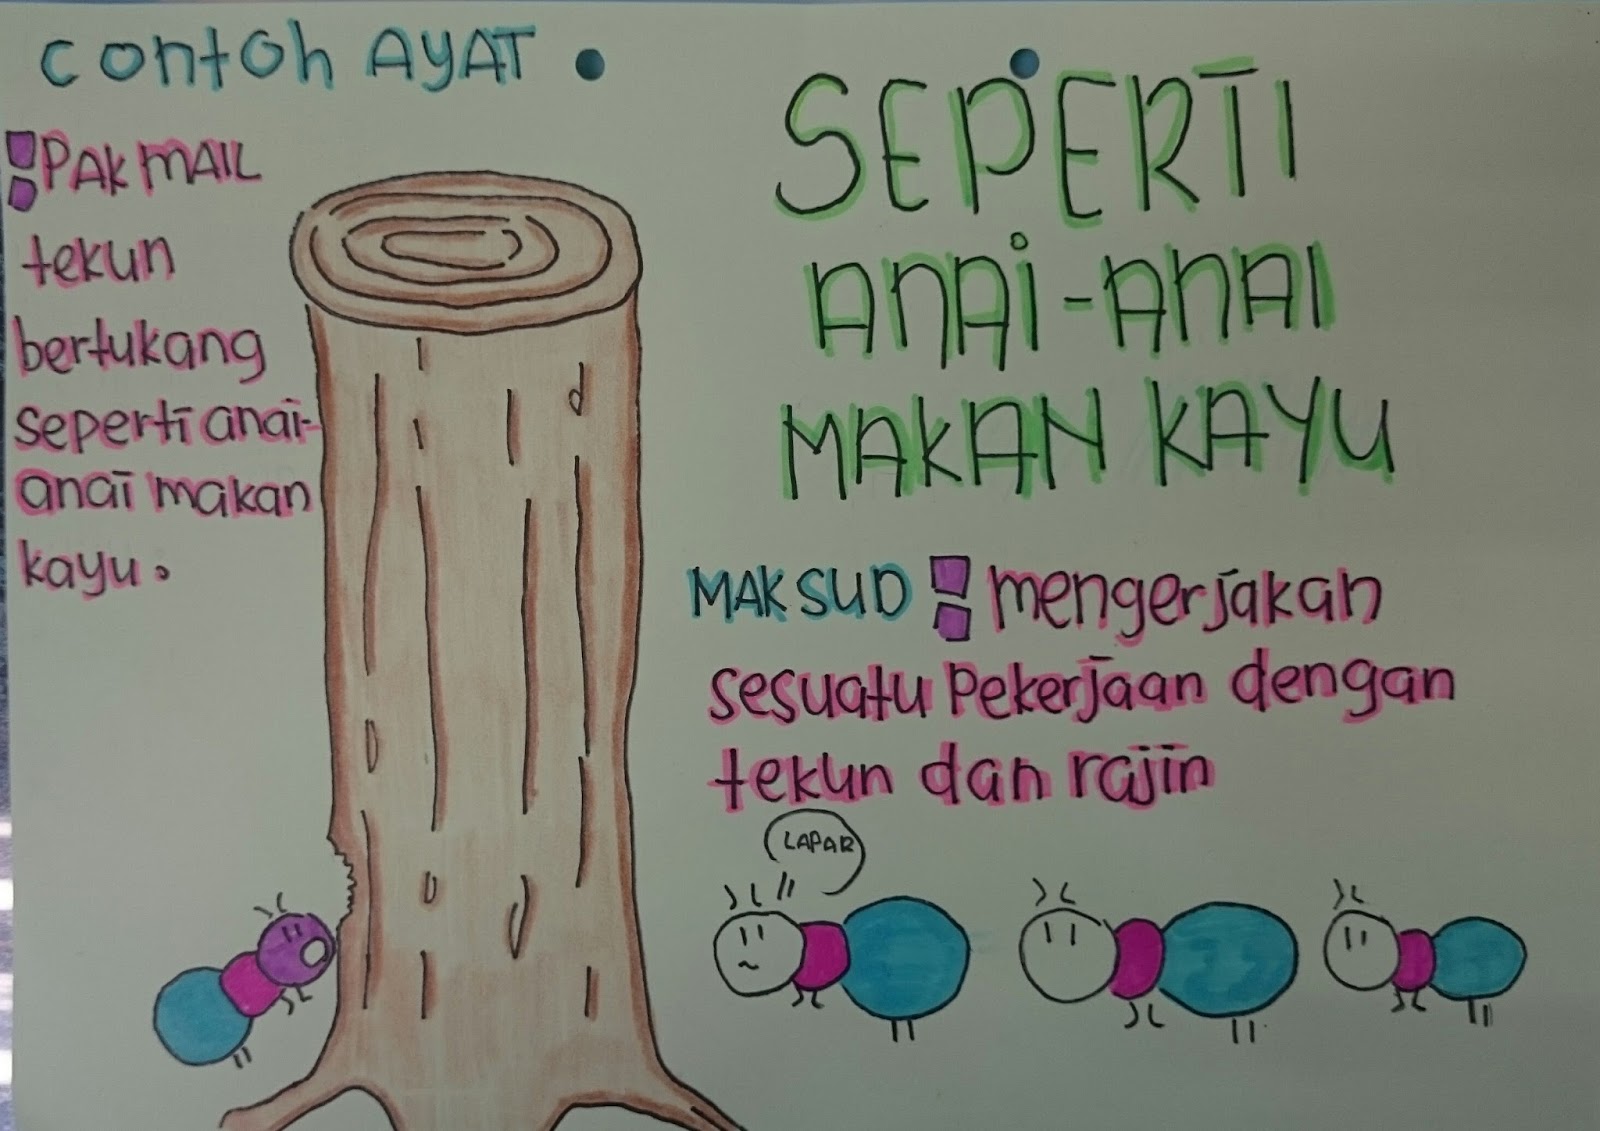 Contoh AYAT
: PAK MAIL
tekun
bertukang
seperti anai-
anai makan
kayu.
SEPERTI
ANAI-ANAI
MAKAN KAYU
MAKSUD : mengerjakan
sesuatu Pekerjaan dengan
tekun dan rajin
LAPAR